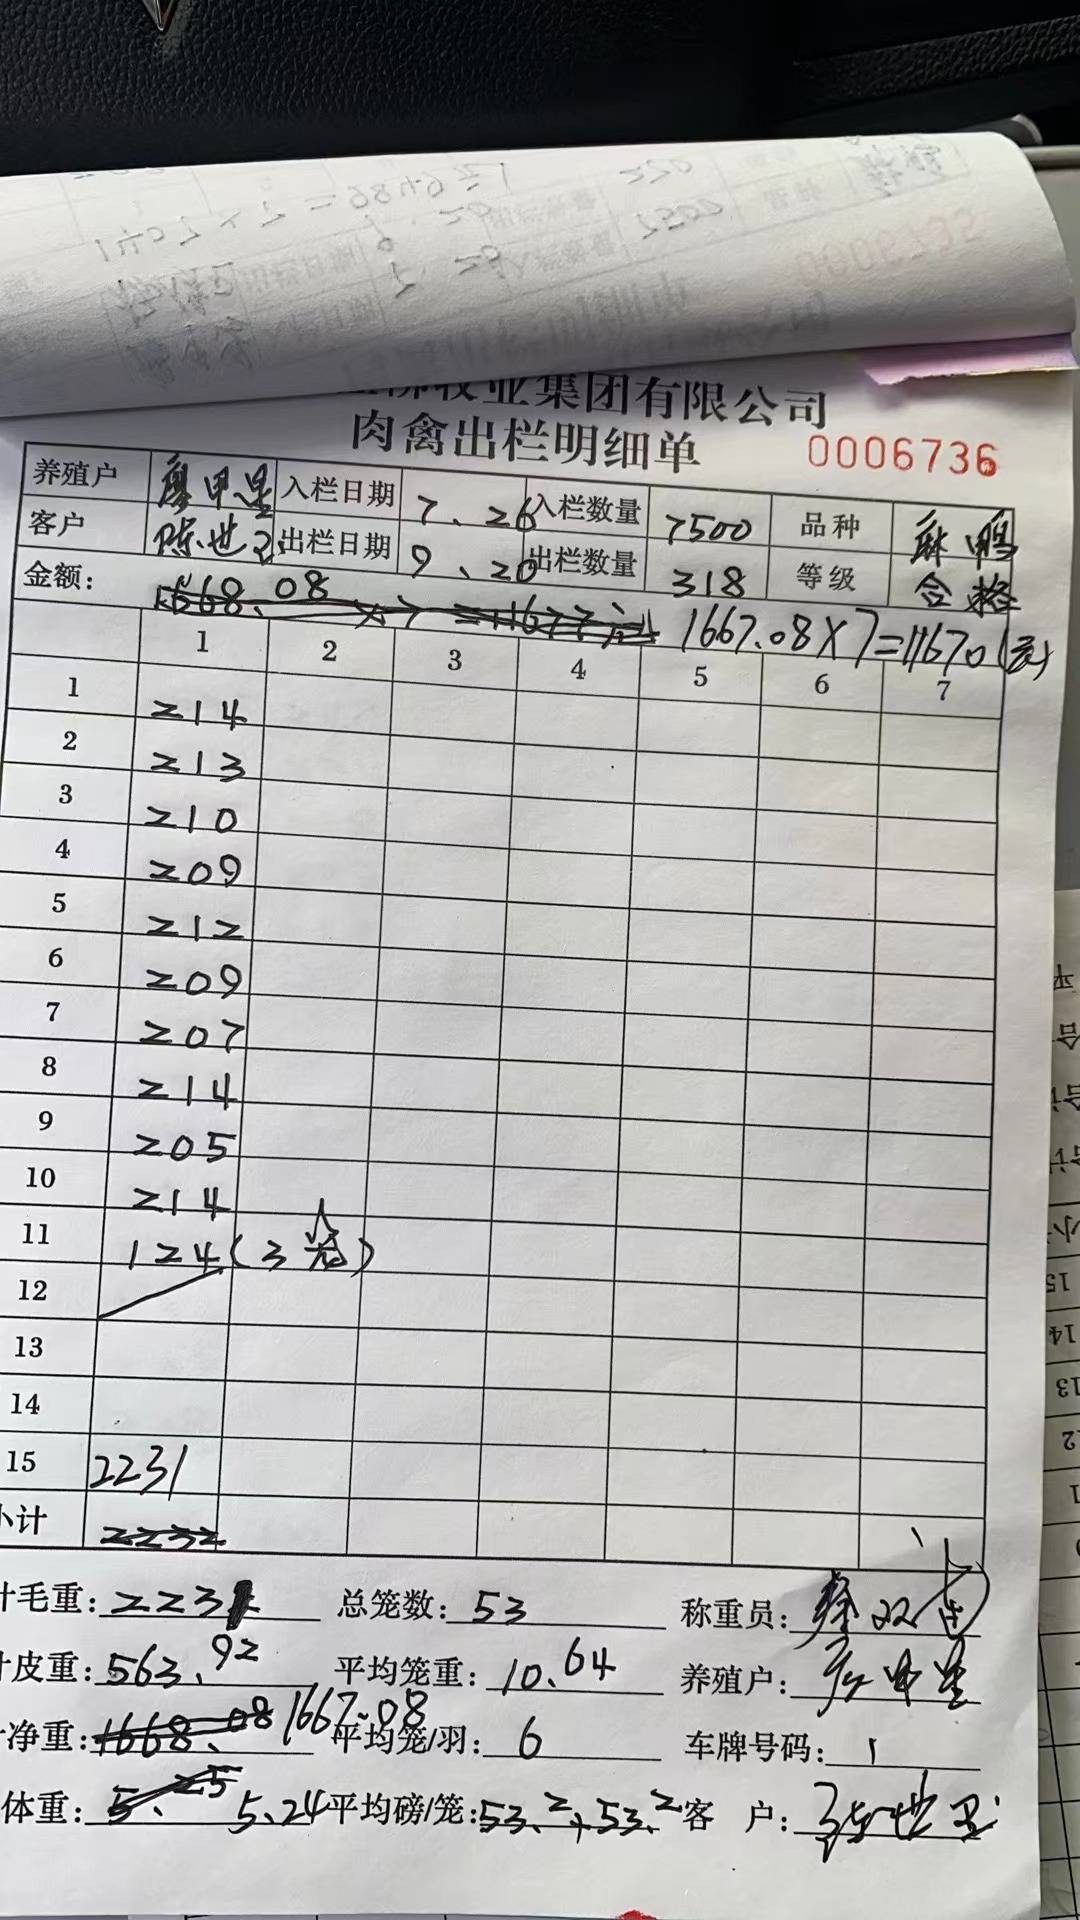 牧业集团有限公司
肉禽出栏明细单 0006736
养殖户 廖甲星 入栏日期 7、26 入栏数量 7500 品种 麻鸭
客户 陈世 出栏日期 9、20 出栏数量 318 等级 合格
金额: 1668.08×7=11677元 1667.08×7=11670(元)
1 2 3 4 5 6 7
1 214
2 213
3 210
4 209
5 212
6 209
7 207
8 214
9 205
10 214
11 124(3笼)
12
13
14
15 2231
小计 2232
计毛重: 2231 总笼数: 53 称重员:
计皮重: 563.92 平均笼重: 10.64 养殖户: 廖甲星
净重: 1668.08 1667.08 平均笼/羽: 6 车牌号码: 1
体重: 5.25 5.24 平均磅/笼: 53.2+53.2 客 户: